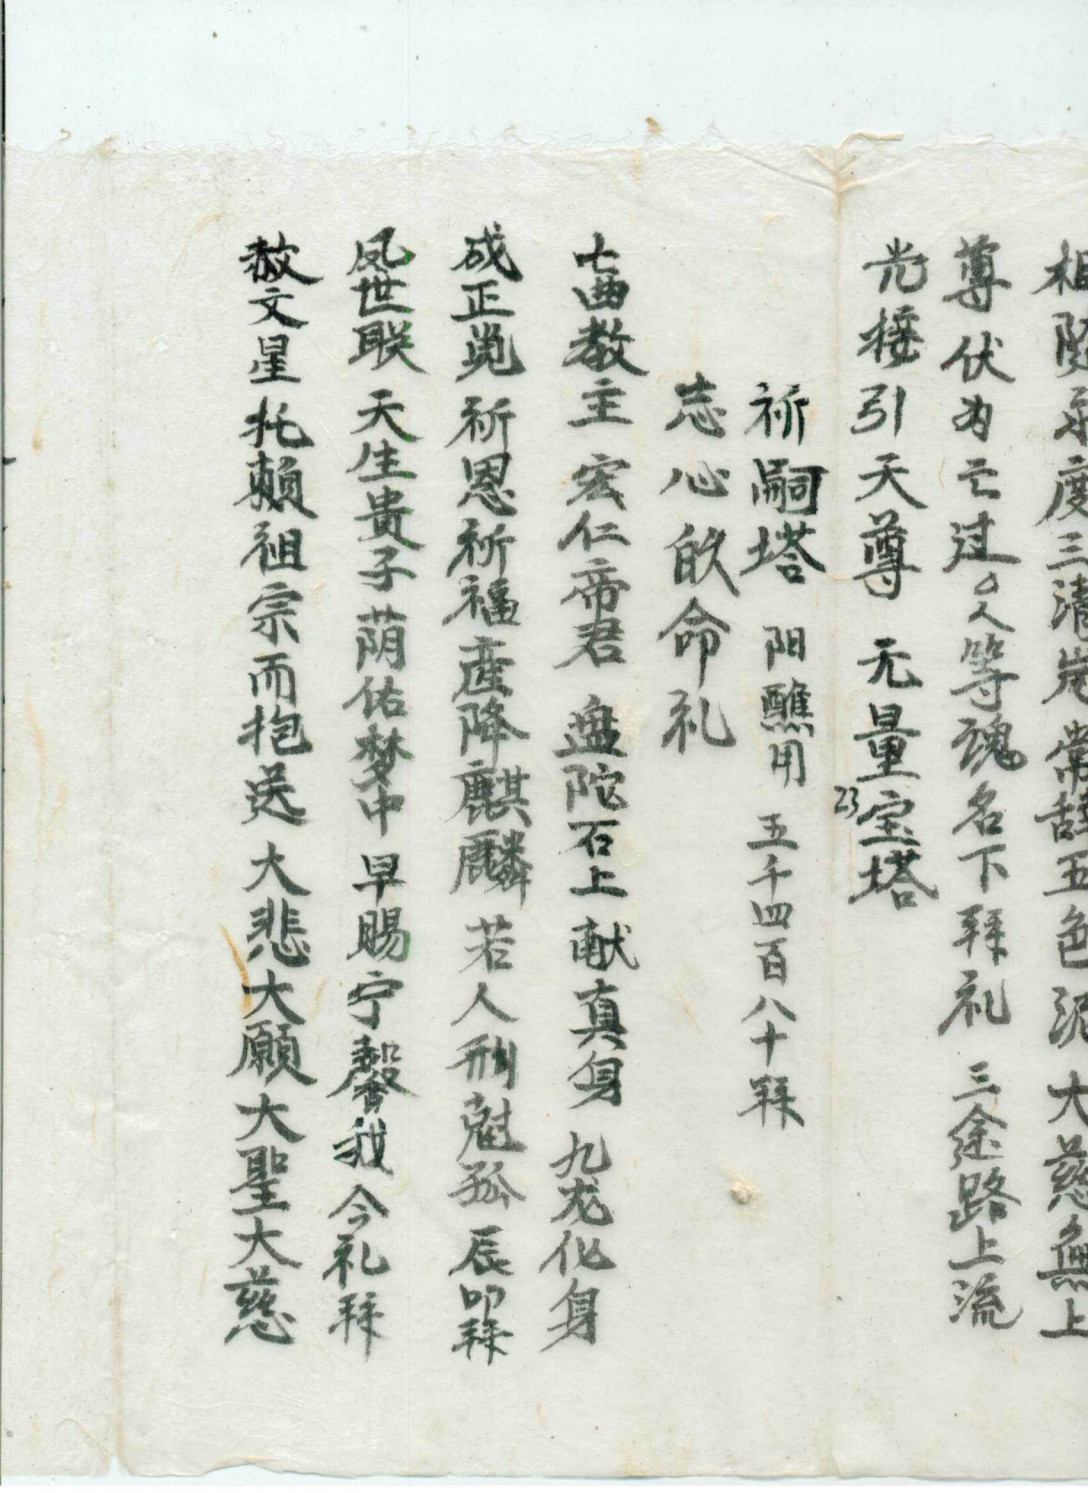 相陀示度三清岸常諳五色泥大慈無上
尊伏为亡过人等魂名下拜礼三途路上流
光接引天尊 无量宝塔
23
祈嗣塔 阳醮用 五千四百八十拜
志心皈命礼
七曲教主宏仁帝君 盘陀石上献真身 九龙化身
成正覚 祈恩祈福产降麒麟 若人刑尅孤辰叩拜
夙世联 天生贵子荫佑梦中 早赐宁馨我今礼拜
赦文星托赖祖宗而抱送 大悲大願大聖大慈